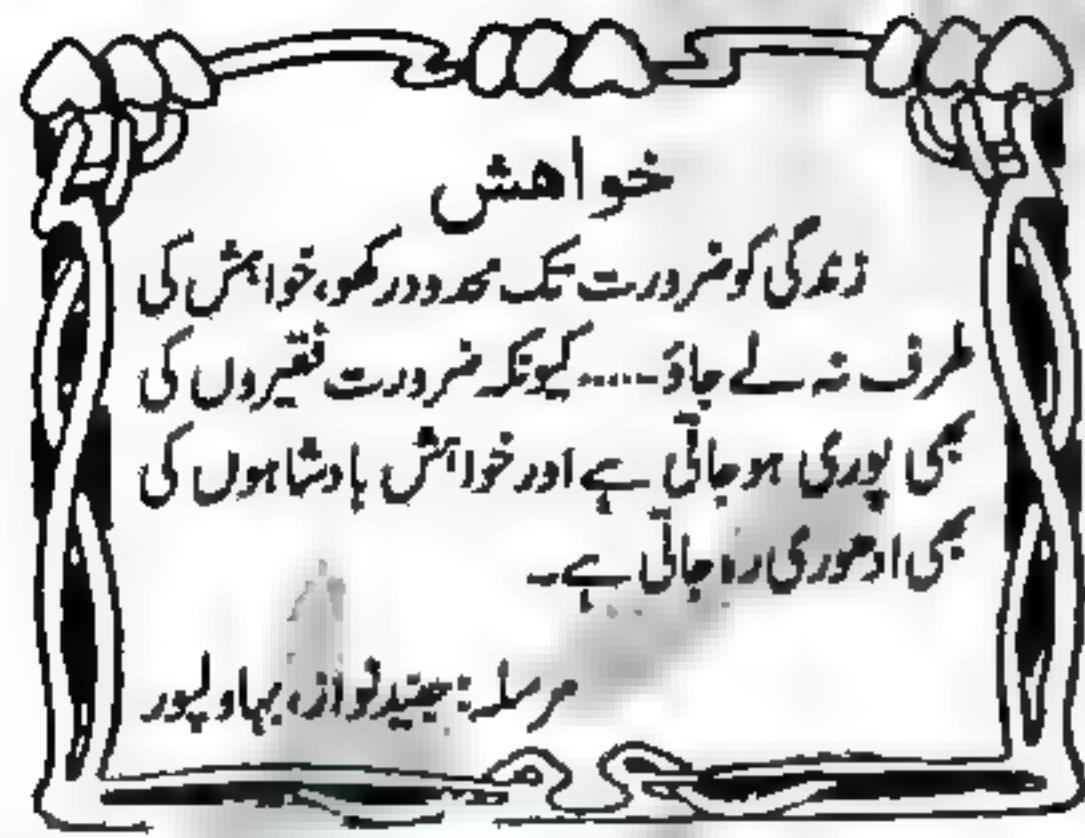 خواهش
زندگی کو ضرورت تک محدود رکھو، خواہش کی
طرف نہ لے جاؤ۔.... کیونکہ ضرورت فقیروں کی
بھی پوری ہو جاتی ہے اور خواہش بادشاہوں کی
بھی ادھوری رہ جاتی ہے۔
مرسلہ: جنید نواز، بہاولپور